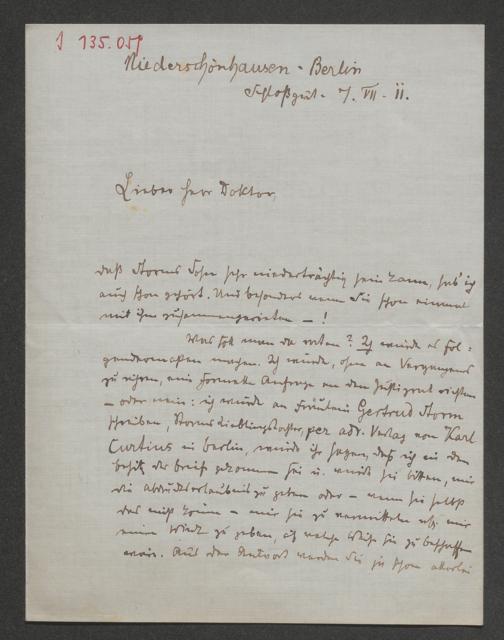 I 135.051
Niederschönhausen - Berlin
Schloßgut - 7. VII - 11.
Lieber Herr Doktor,
daß Storms Sohn sehr niederträchtig sein kann, hab' ich
auch schon gehört. Und besonders wenn Sie schon einmal
mit ihm zusammengerieten — !
Was soll man da raten? Ich würde es fol-
gendermaßen machen. Ich würde, ohne an Vergangenes
zu rühren, eine formelle Anfrage an den Justizrat richten
— oder nein: ich würde an Fräulein Gertrud Storm
schreiben, Storms Lieblingstochter, per adr. Verlag von Karl
Curtius in Berlin, würde ihr sagen, daß ich in den
Besitz der Briefe gekommen sei u. würde sie bitten, mir
die Abdruckserlaubnis zu geben oder — wenn sie selbst
das nicht könne — mir sie zu vermitteln resp. mir
einen Wink zu geben, auf welche Weise sie zu beschaffen
wäre. Aus der Antwort werden Sie ja schon allerlei